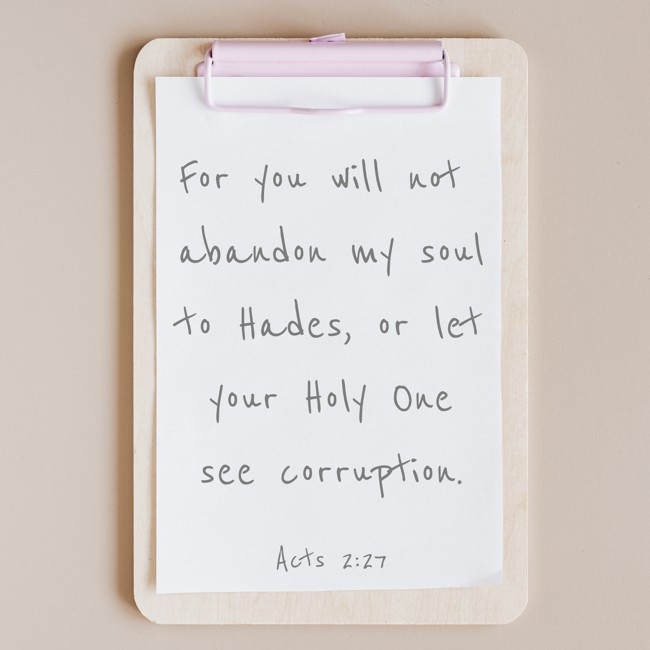 For you will not
abandon my soul
to Hades, or let
your Holy One
see corruption.
Acts 2:27